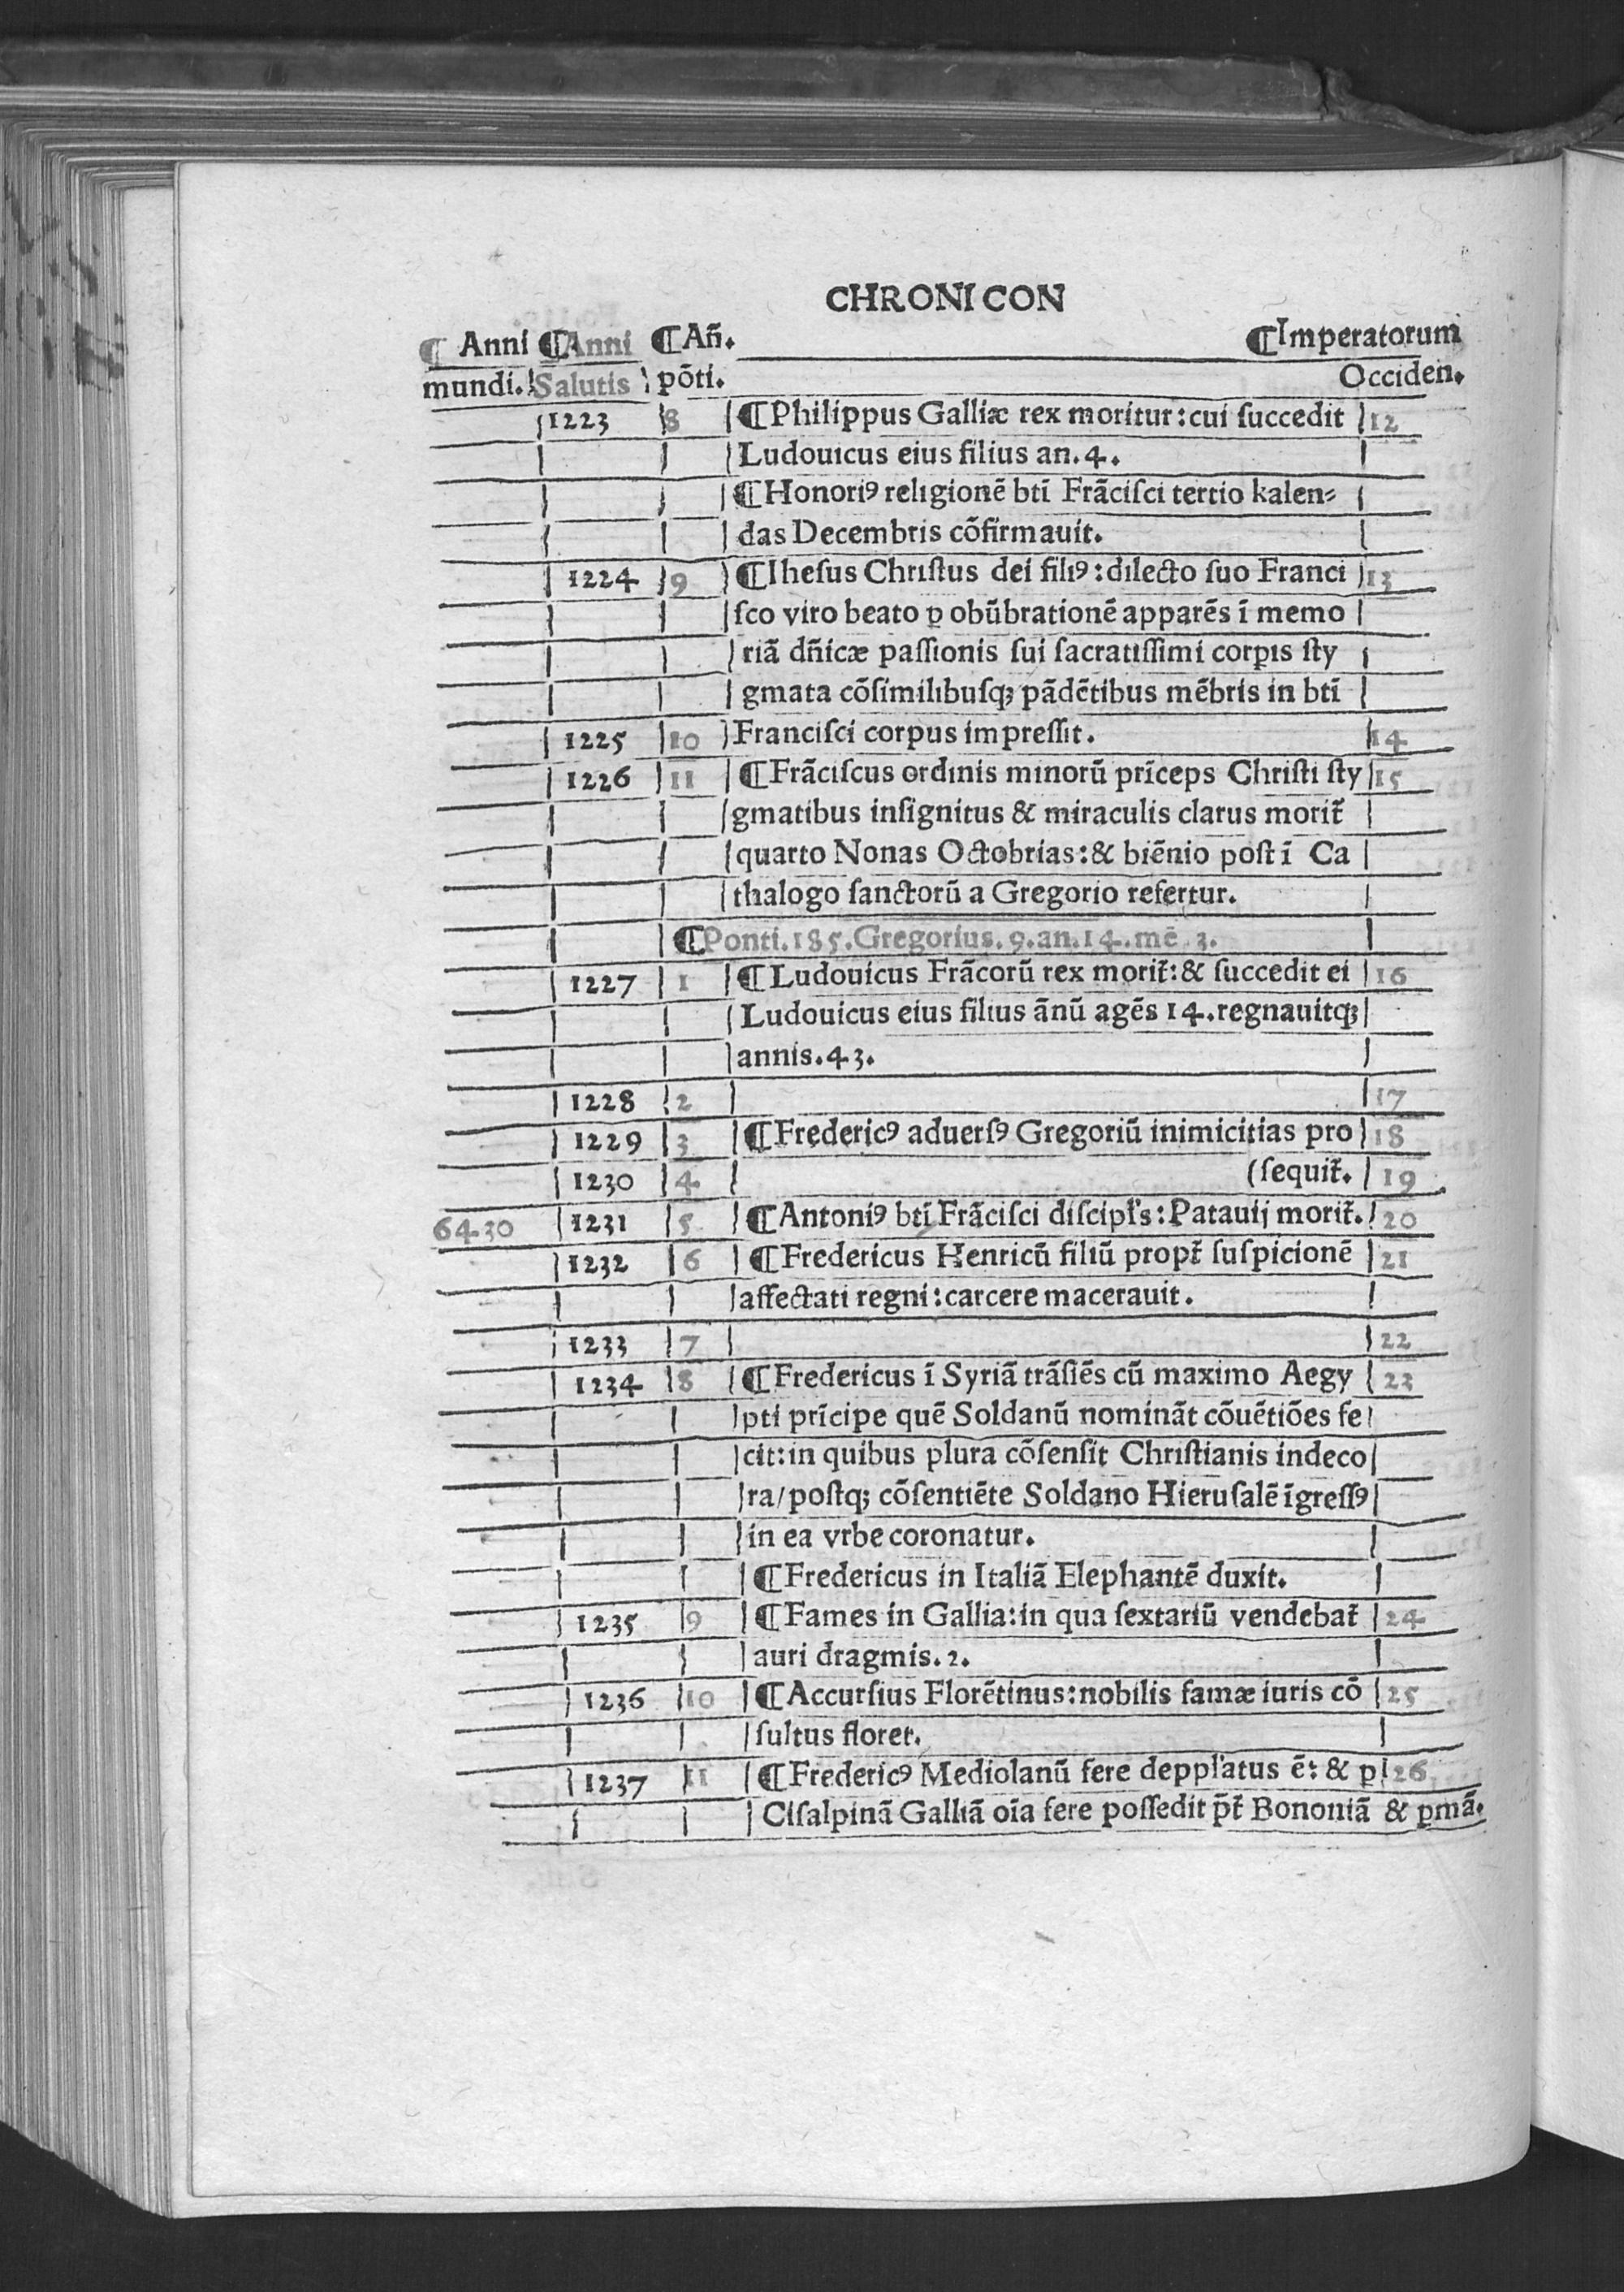 CHRONICON
¶ Anni ¶Anni ¶Añ. ¶Imperatorum
mundi. Salutis põti. Occideñ.
1223 8 ¶Philippus Galliæ rex moritur:cui ſuccedit 12
Ludouicus eius filius an.4.
¶Honoriꝰ religionẽ btĩ Frãciſci tertio kalen⸗
das Decembris cõfirmauit.
1224 9 ¶Iheſus Chriſtus dei filiꝰ:dilecto ſuo Franci 13
ſco viro beato ꝑ obũbrationẽ apparẽs ĩ memo
riã dñicæ paſſionis ſui ſacratiſſimi corꝑis ſty
gmata cõſimilibuſqꝫ pãdẽtibus mẽbris in btĩ
1225 10 Franciſci corpus impreſſit. 14
1226 11 ¶Frãciſcus ordinis minorũ prĩceps Chriſti ſty 15
gmatibus inſignitus & miraculis clarus morit̃
quarto Nonas Octobrias:& biẽnio poſt ĩ Ca
thalogo ſanctorũ a Gregorio refertur.
¶Ponti.185.Gregorius.9.an.14.mẽ.3.
1227 1 ¶Ludouicus Frãcorũ rex morit̃:& ſuccedit ei 16
Ludouicus eius filius ãnũ agẽs 14.regnauitqꝫ
annis.43.
1228 2 17
1229 3 ¶Fredericꝰ aduerſꝰ Gregoriũ inimicitias pro 18
1230 4 (ſequit̃. 19
6430 1231 5 ¶Antoniꝰ btĩ Frãciſci diſcipl's:Patauij morit̃. 20
1232 6 ¶Fredericus Henricũ filiũ propt̃ ſuſpicionẽ 21
affectati regni:carcere macerauit.
1233 7 22
1234 8 ¶Fredericus ĩ Syriã trãſiẽs cũ maximo Aegy 23
pti prĩcipe quẽ Soldanũ nominãt cõuẽtiões fe
cit:in quibus plura cõſenſit Chriſtianis indeco
ra/poſtqꝫ cõſentiẽte Soldano Hieruſalẽ ĩgreſſꝰ
in ea vrbe coronatur.
¶Fredericus in Italiã Elephantẽ duxit.
1235 9 ¶Fames in Gallia:in qua ſextariũ vendebat̃ 24
auri dragmis.2.
1236 10 ¶Accurſius Florẽtinus:nobilis famæ iuris cõ 25
ſultus floret.
1237 11 ¶Fredericꝰ Mediolanũ fere deppl'atus ẽ: & ꝑ 26
Ciſalpinã Galliã oĩa fere poſſedit p̃t̃ Bononiã & ꝑmã.